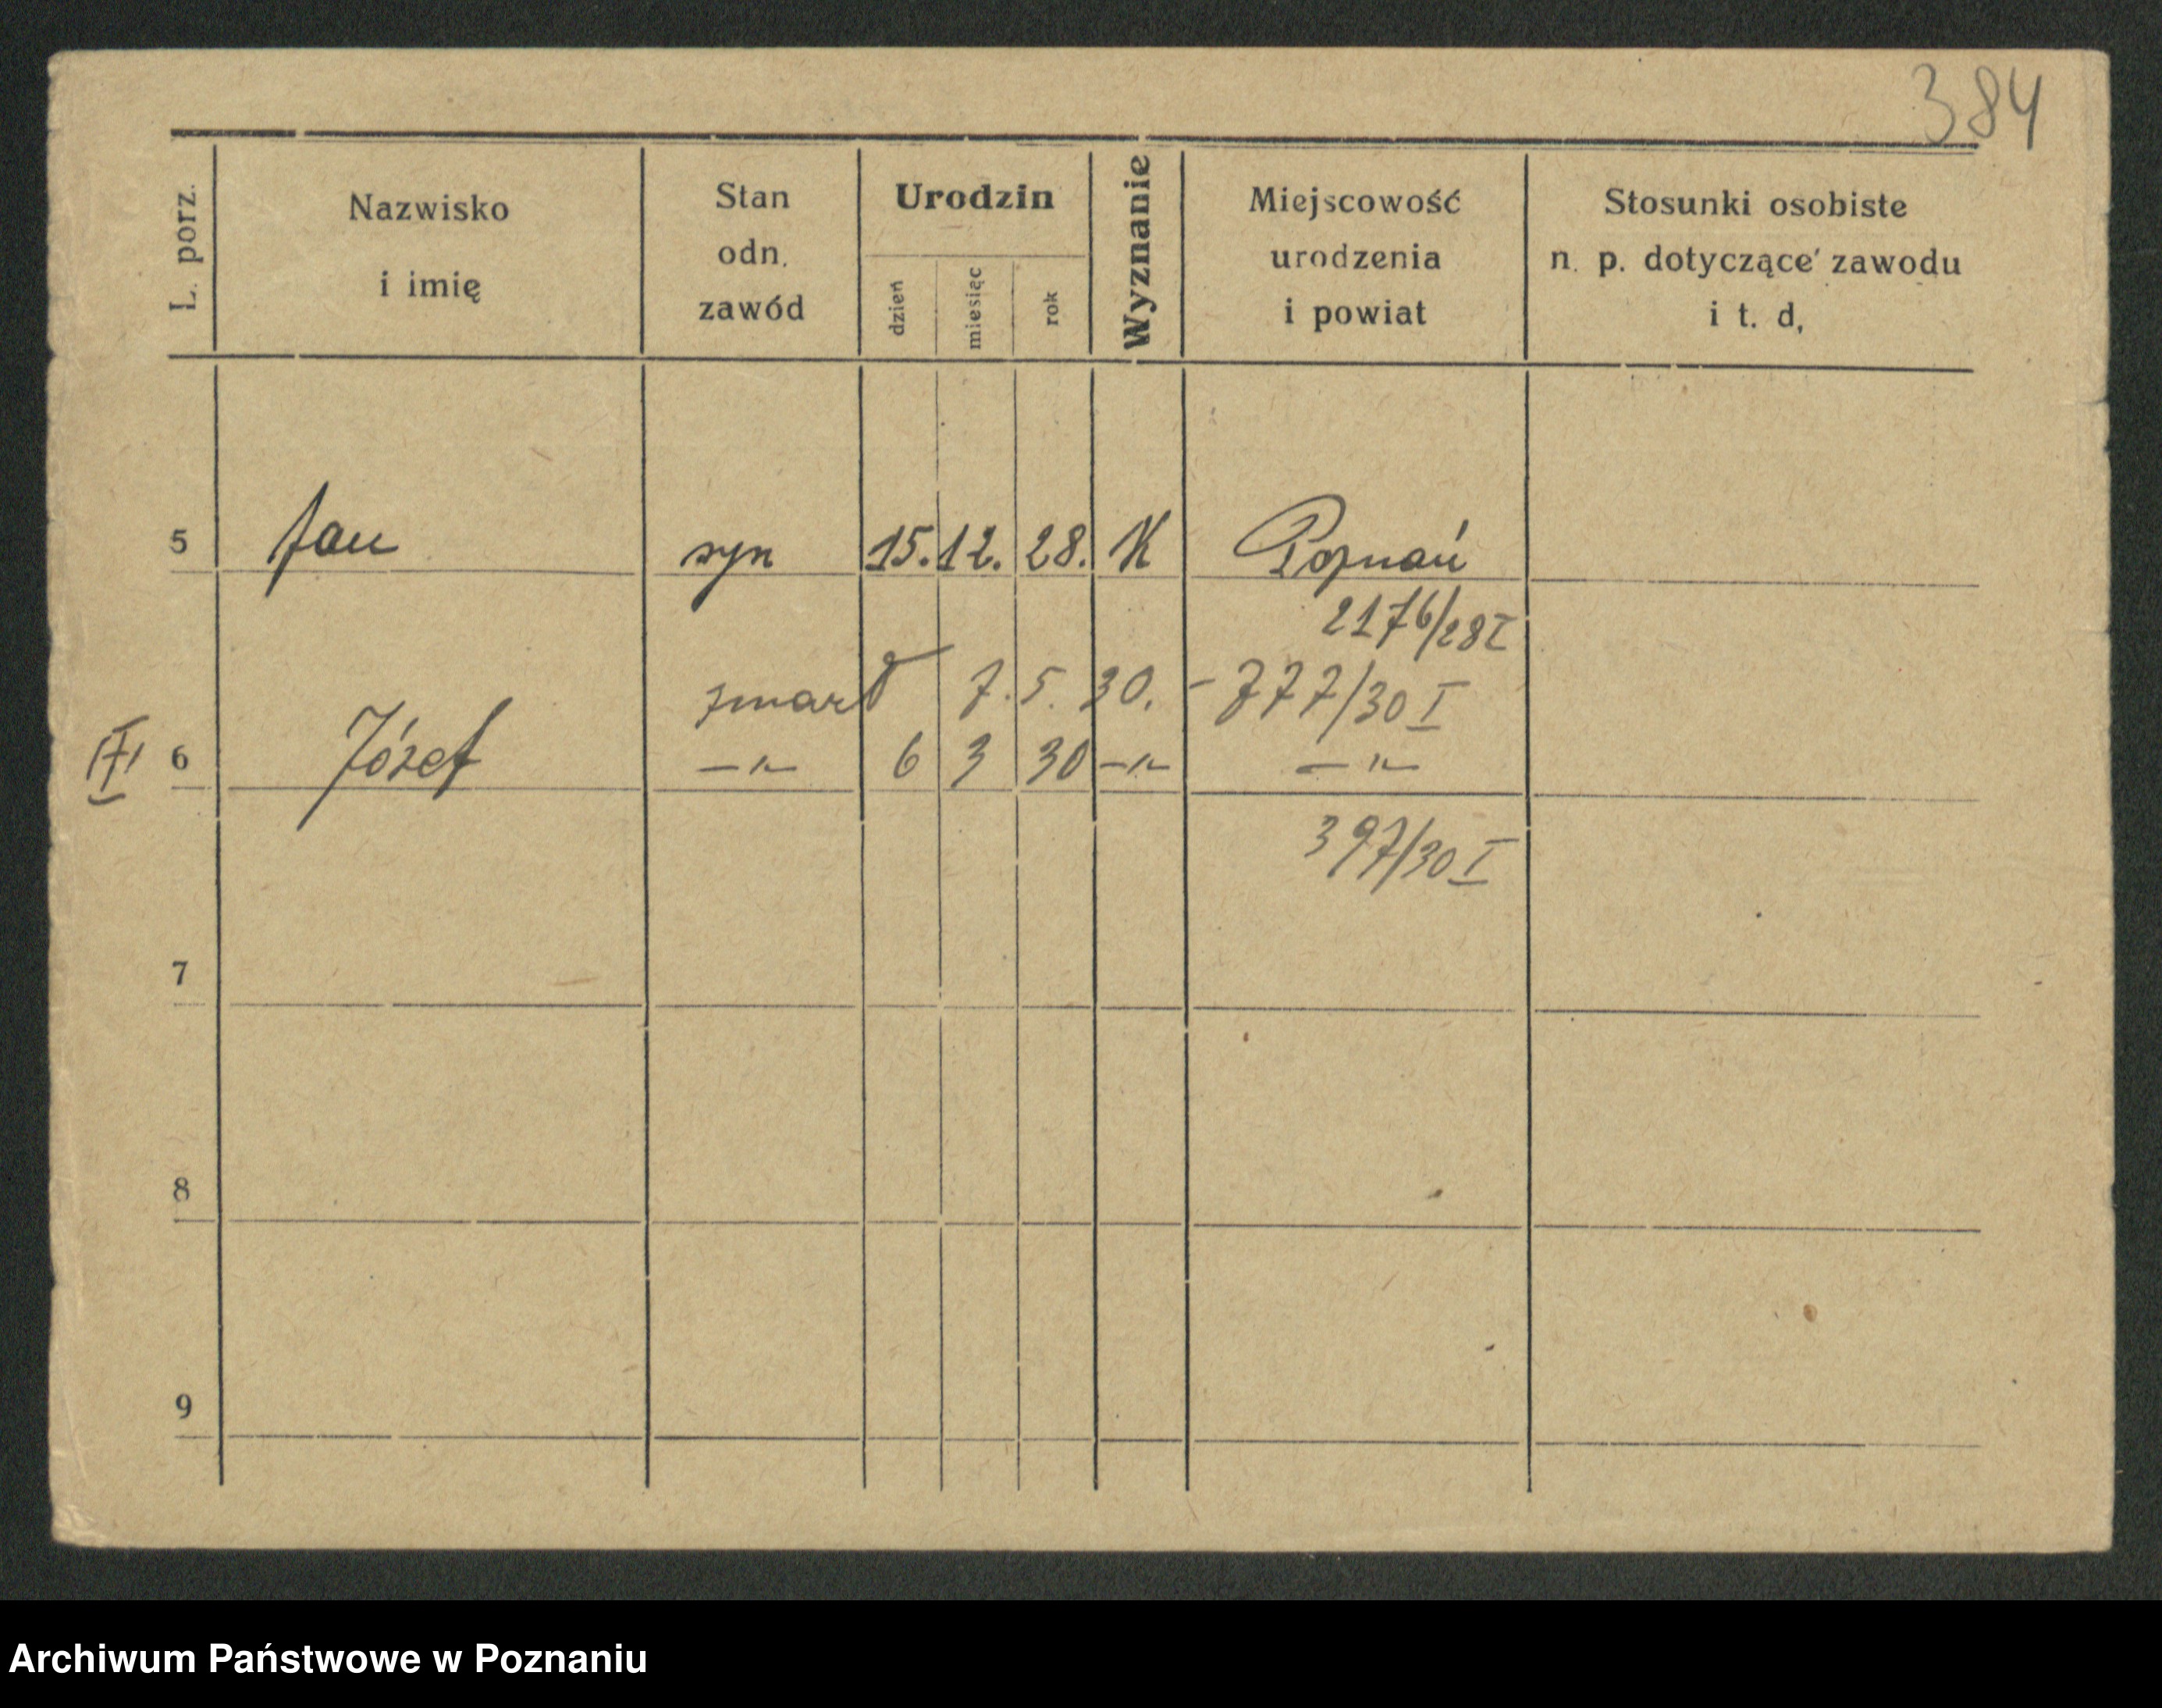 384
L. porz.
Nazwisko
i imię
Stan
odn.
zawód
Urodzin
dzień
miesięc
rok
Wyznanie
Miejscowość
urodzenia
i powiat
Stosunki osobiste
n. p. dotyczące zawodu
i t. d,
5 Jan syn 15. 12. 28. K Poznań
2176/28 I
zmarł 7. 5. 30. - 777/30 I
6 Józef —"— 6 3 30 —"— —"—
397/30 I
7
8
9
Archiwum Państwowe w Poznaniu